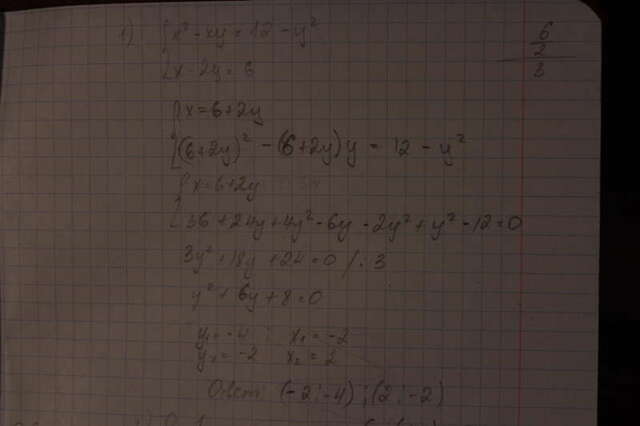 1) { x² - xy = 12 - y²
{ x - 2y = 6
6
2
3
{ x = 6 + 2y
{ (6+2y)² - (6+2y)y = 12 - y²
{ x = 6 + 2y
{ 36 + 24y + 4y² - 6y - 2y² + y² - 12 = 0
3y² + 18y + 24 = 0 / : 3
y² + 6y + 8 = 0
y₁ = -4 ; x₁ = -2
y₂ = -2 x₂ = 2
Ответ (-2; -4) ; (2; -2)